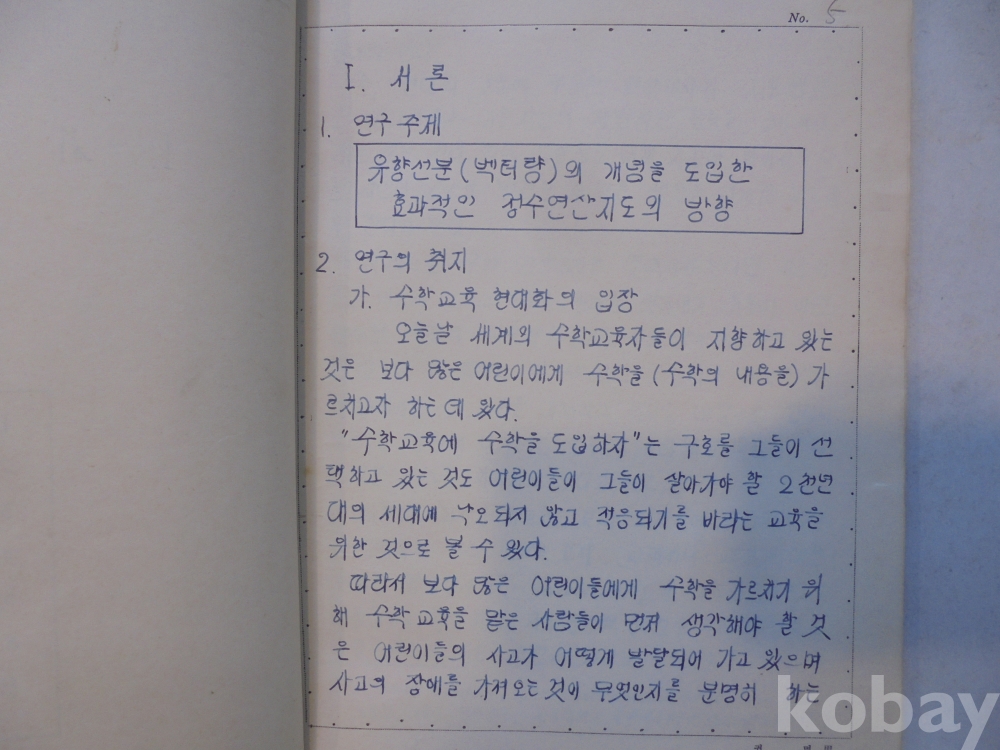 No. 5
I. 서 론
1. 연구 주제
유향선분(벡터량)의 개념을 도입한
효과적인 정수연산지도의 방향
2. 연구의 취지
가. 수학교육 현대화의 입장
오늘날 세계의 수학교육자들이 지향하고 있는
것은 보다 많은 어린이에게 수학을(수학의 내용을) 가
르치고자 하는데 있다.
"수학교육에 수학을 도입하자"는 구호를 그들이 선
택하고 있는 것도 어린이들이 그들이 살아가야 할 2천년
대의 세대에 낙오되지 않고 적응되기를 바라는 교육을
위한 것으로 볼 수 있다.
따라서 보다 많은 어린이들에게 수학을 가르치기 위
해 수학교육을 맡은 사람들이 먼저 생각해야 할 것
은 어린이들의 사고가 어떻게 발달되어 가고 있으며
사고의 장애를 가져오는 것이 무엇인지를 분명히 하는
kobay